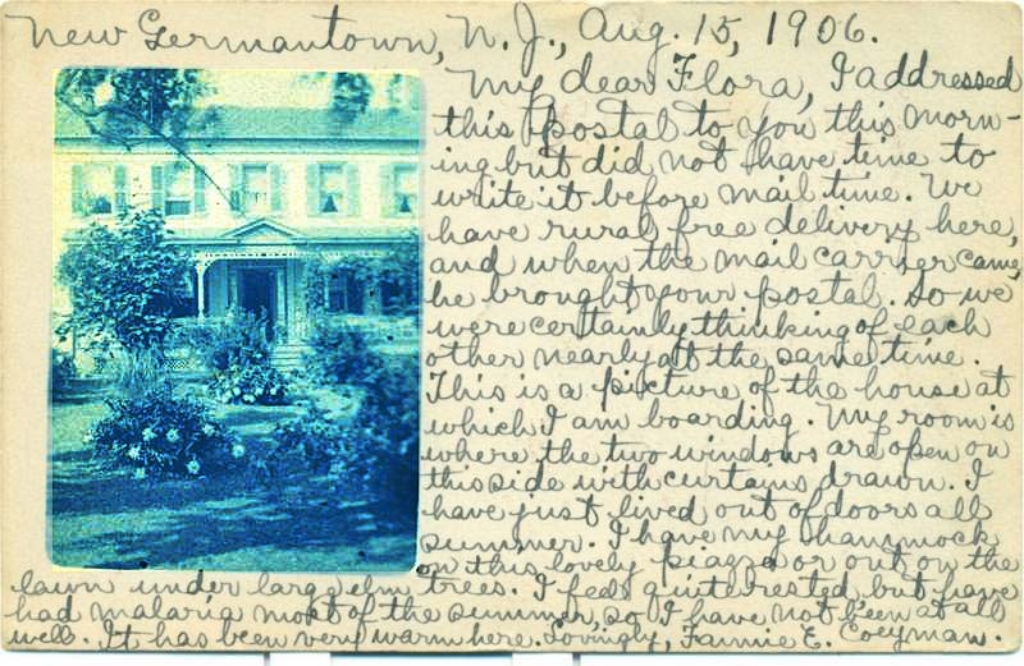 New Germantown, N. J., Aug. 15, 1906.
My dear Flora, I addressed
this postal to you this morn-
ing but did not have time to
write it before mail time. We
have rural free delivery here,
and when the mail carrier came,
he brought your postal. So we
were certainly thinking of each
other nearly at the same time.
This is a picture of the house at
which I am boarding. My room is
where the two windows are open on
this side with curtains drawn. I
have just lived out of doors all
summer. I have my hammock
on this lovely piazza or out on the
lawn under large elm trees. I feel quite rested but have
had malaria most of the summer, so I have not been at all
well. It has been very warm here. Lovingly, Fannie E. Coeyman.